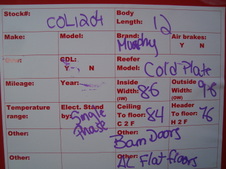 Stock#: COL1204 Body Length: 12
Make: Model: Brand: Murphy Air brakes: Y N
CDL: Y N Reefer Model: Cold Plate
Mileage: Year: Inside Width: 86 (DW) Outside Width: 96 (DW)
Temperature range: Elect. Stand by Single Phase Ceiling To floor: 84 C 2 F Header To floor: 76 H 2 F
Other: Other: Barn Doors
Other: Other: AC Flat floors